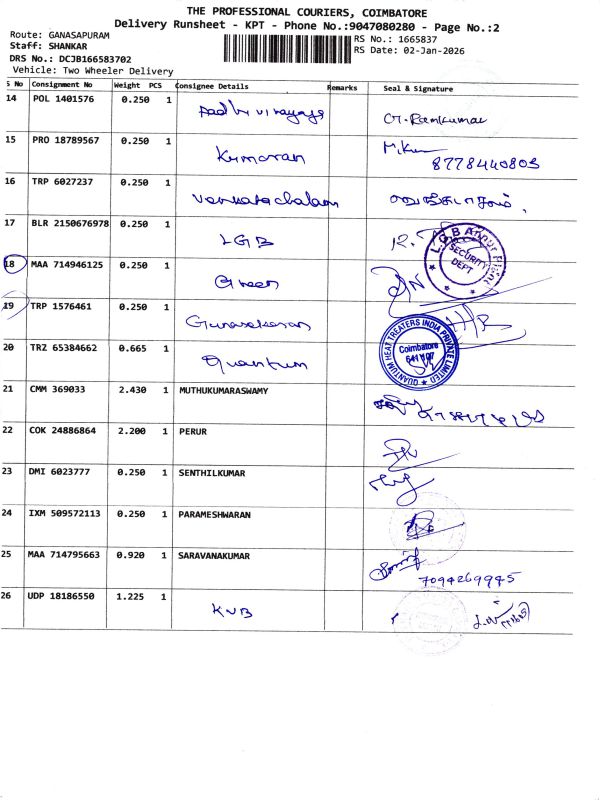 THE PROFESSIONAL COURIERS, COIMBATORE
Delivery Runsheet - KPT - Phone No.:9047080280 - Page No.:2
Route: GANASAPURAM
RS No.: 1665837
Staff: SHANKAR
RS Date: 02-Jan-2026
DRS No.: DCJB166583702
Vehicle: Two Wheeler Delivery
S No Consignment No Weight PCS Consignee Details Remarks Seal & Signature
14 POL 1401576 0.250 1 Aadhi vinayaga G. Ramkumar
15 PRO 18789567 0.250 1 Kumaran M.Kum
8778440803
16 TRP 6027237 0.250 1 Venkatachalam
17 BLR 2150676978 0.250 1 LGB
L.G.B Annur Plant
SECURITY
DEPT
18 MAA 714946125 0.250 1 Green
19 TRP 1576461 0.250 1 Gunasekaran
20 TRZ 65384662 0.665 1 Quantum
QUANTUM HEAT TREATERS INDIA PRIVATE LIMITED
Coimbatore
641 107
21 CMM 369033 2.430 1 MUTHUKUMARASWAMY
22 COK 24886864 2.200 1 PERUR
23 DMI 6023777 0.250 1 SENTHILKUMAR
24 IXM 509572113 0.250 1 PARAMESHWARAN
25 MAA 714795663 0.920 1 SARAVANAKUMAR
7094269945
26 UDP 18186550 1.225 1 KVB